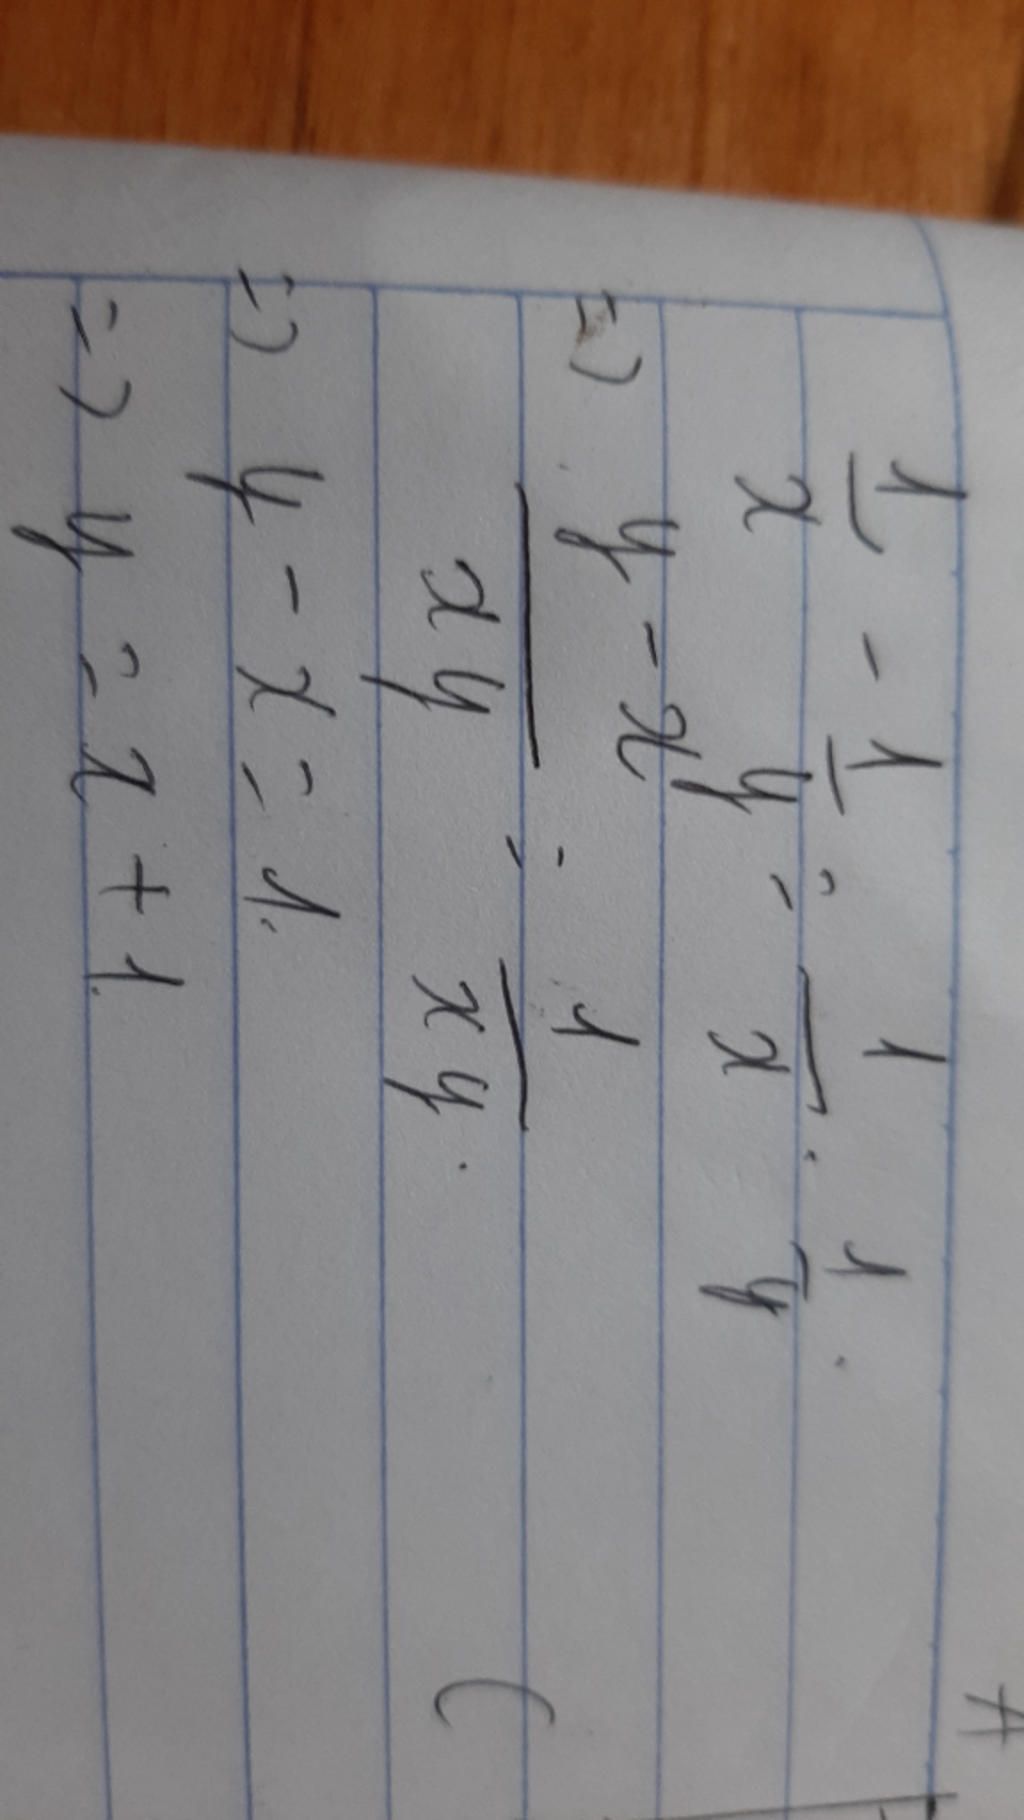 1/x - 1/y = 1/x . 1/y .
=> y - x / xy = 1 / xy .
=> y - x = 1.
=> y = x + 1.
A
(